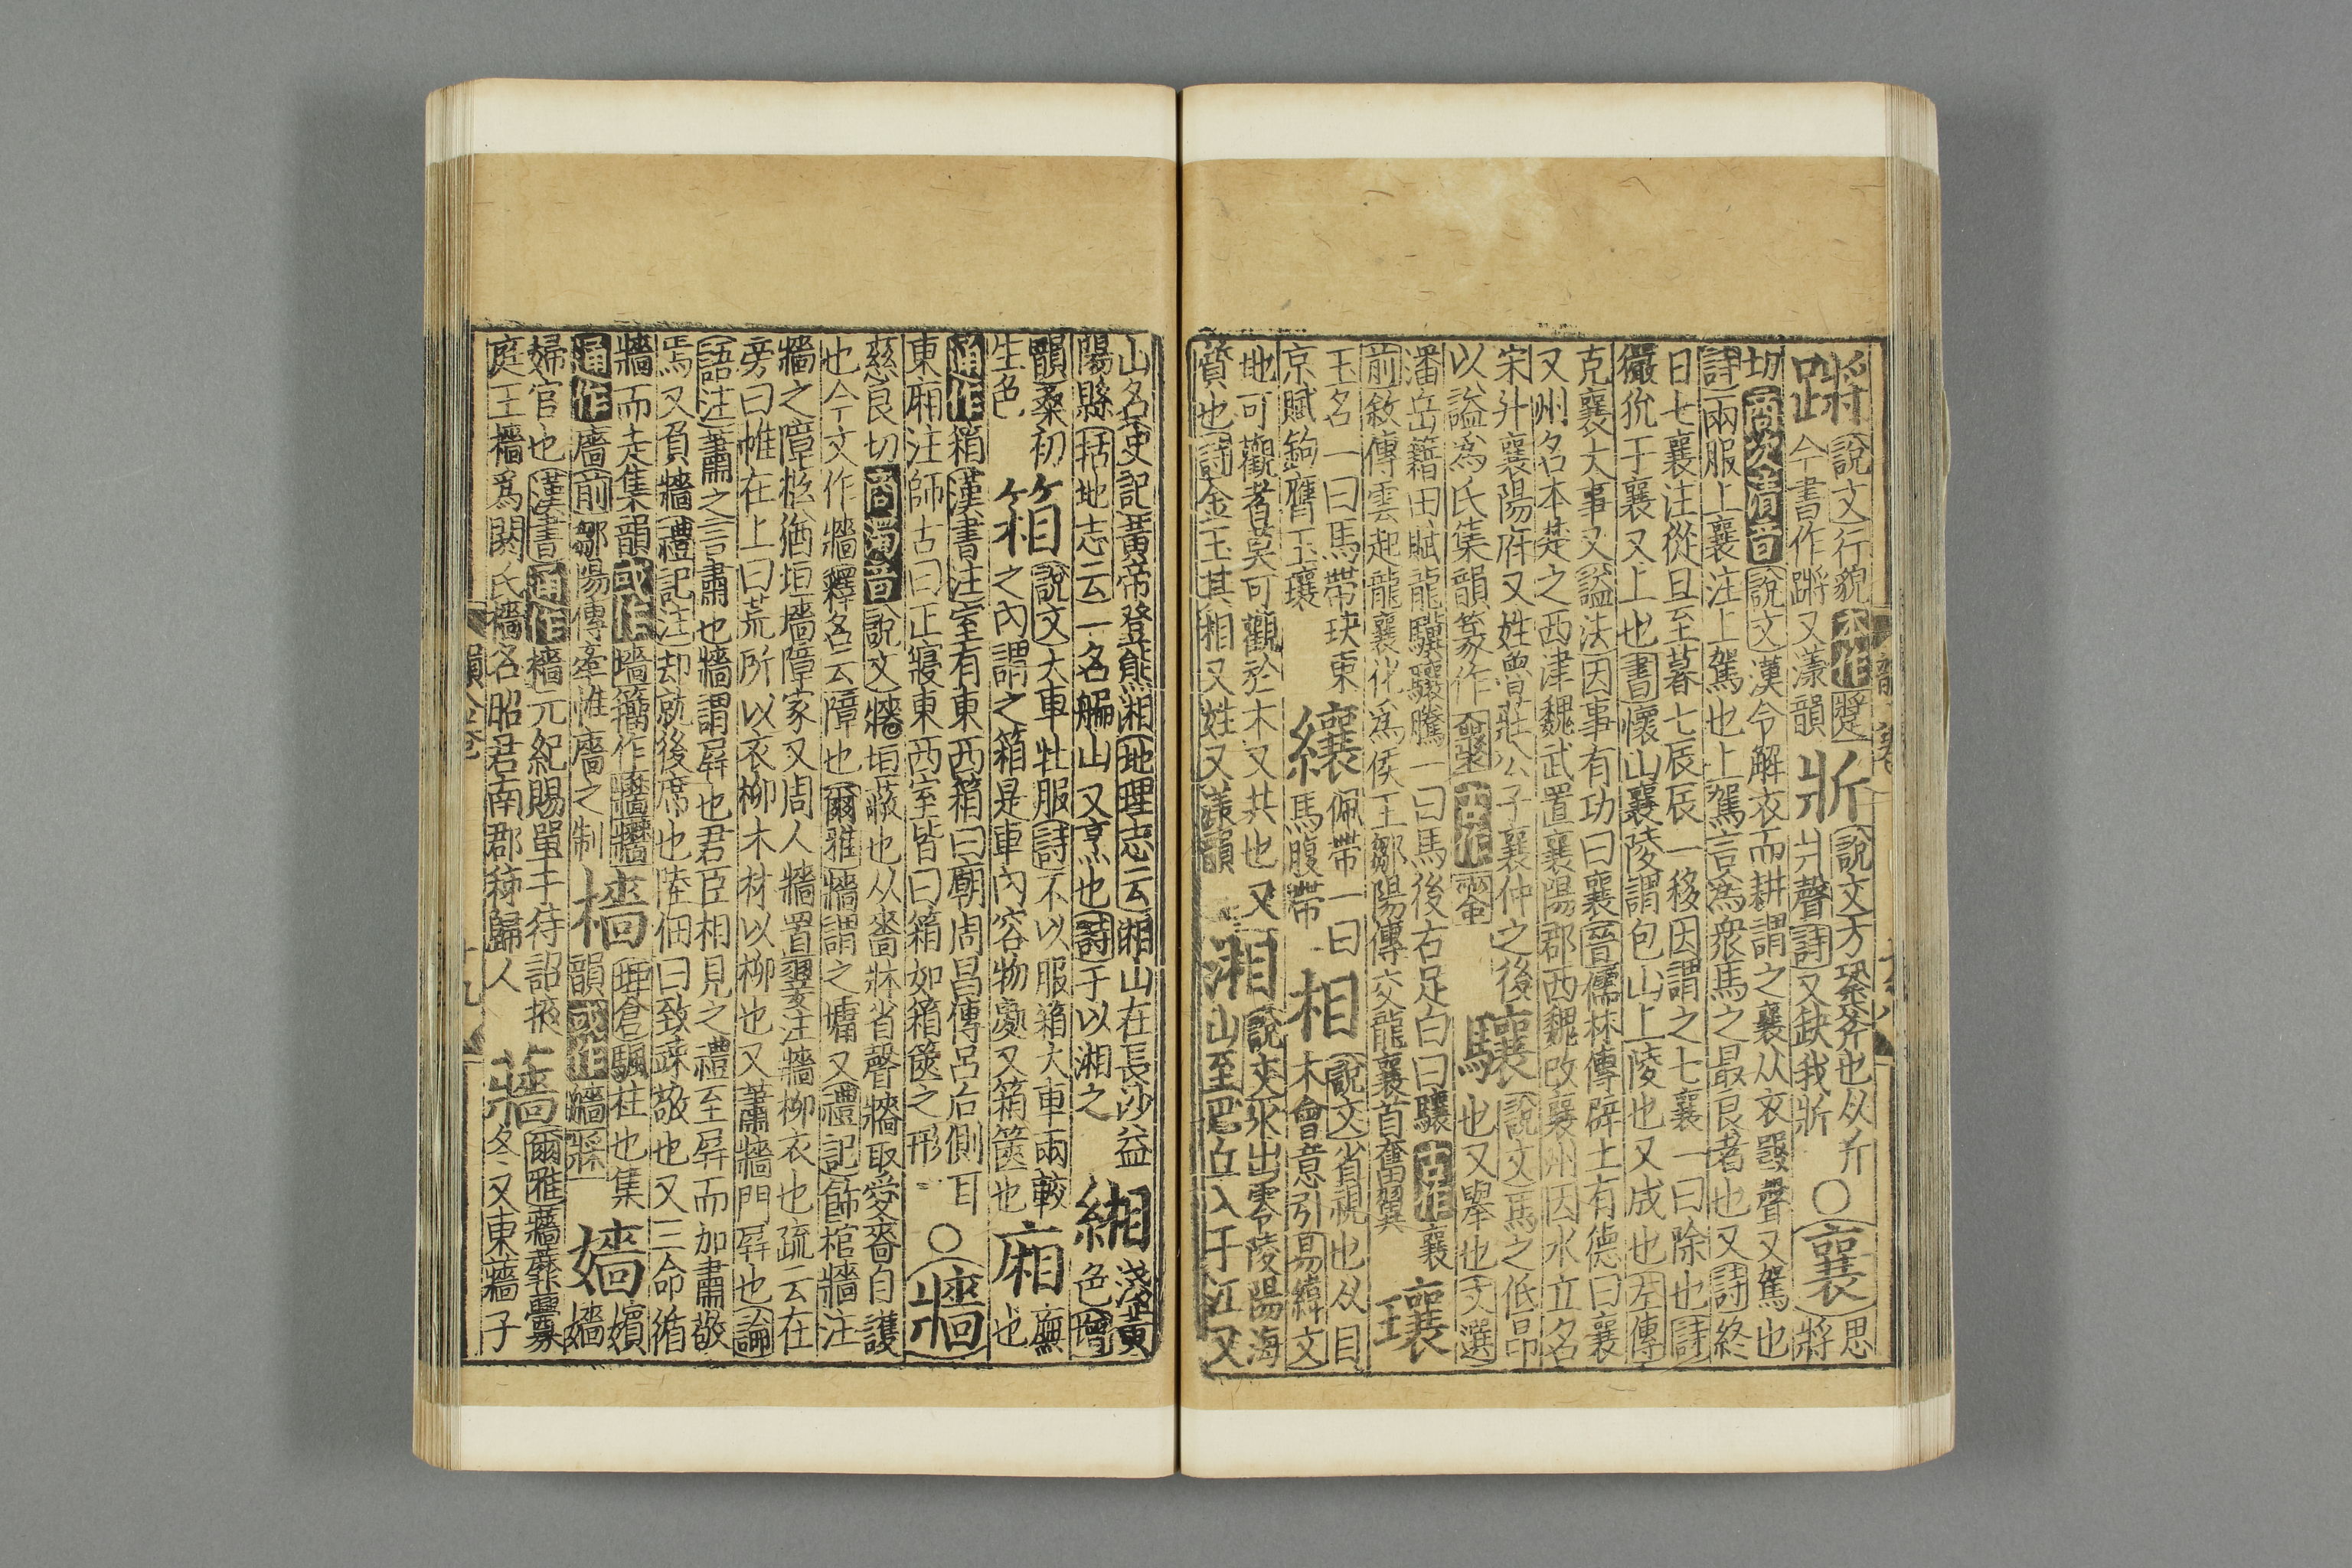 蹡 說文行貌本作蹩 斨 說文方銎斧也从斤 ○ 襄 思
今書作蹡又漾韻 爿聲詩又缺我斨 將
切商次清音說文漢令解衣而耕謂之襄从衣𤕦聲又駕也
詩兩服上襄注上駕也上駕言爲衆馬之最良者也又詩終
日七襄注從旦至暮七辰辰一移因謂之七襄一曰除也詩
玁狁于襄又上也書懷山襄陵謂包山上陵也又成也左傳
克襄大事又諡法因事有功曰襄晉儒林傳辟土有德曰襄
又州名本楚之西津魏武置襄陽郡西魏改襄州因水立名
宋升襄陽府又姓魯莊公子襄仲之後 驤 說文馬之低昂
以諡爲氏集韻篆作 古作 也又舉也文選
潘岳籍田賦龍驥驤騰一曰馬後右足白曰驤古作襄 瓖
前敘傳雲起龍襄化爲侯王鄒陽傳交龍襄首奮翼
玉名一曰馬帶玦東 纕 佩帶一曰 相 說文省視也从目
京賦鉤膺玉瓖 馬腹帶 木會意引易緯文
地可觀者莫可觀於木又共也又 湘 說文水出零陵陽海
質也詩金玉其相又姓又漾韻 山至巴丘入于江又
山名史記黃帝登熊湘地理志云湘山在長沙益 緗 淺黃
陽縣括地志云一名艑山又烹也詩于以湘之 色增
韻桑初 箱 說文大車牡服詩不以服箱大車兩較 廂 廡
生色 之內謂之箱是車內容物處又箱篋也 也
通作箱漢書注室有東西箱曰廟周昌傳呂后側耳 ○ 牆
東廂注師古曰正寢東西室皆曰箱如箱篋之形
慈良切商濁音說文牆垣蔽也从嗇牀省聲牆取愛嗇自護
也今文作牆釋名云障也爾雅牆謂之墉又禮記飾棺牆注
牆之障柩猶垣墻障家又周人牆置翣注牆柳衣也疏云在
旁曰帷在上曰荒所以衣柳木材以柳也又蕭牆門屏也論
語注蕭之言肅也牆謂屏也君臣相見之禮至屏而加肅敬
焉又負牆禮記注却就後席也陸佃曰致疎敬也又三命循
牆而走集韻或作墻籀作 檣 埤倉颿柱也集 嬙 嬪
通作廧前鄒陽傳牽帷廧之制 韻或作艢 嬙
婦官也漢書通作檣元紀賜單于待詔掖 蘠 爾雅蘠蘼虋
庭王檣爲閼氏檣名昭君南郡秭歸人 冬又東蘠子